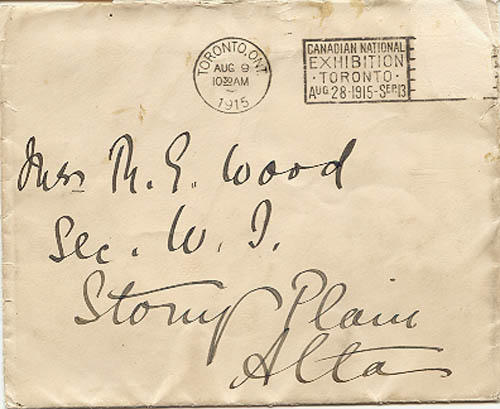 TORONTO, ONT.
AUG 9
10 30 AM
1915
CANADIAN NATIONAL
EXHIBITION
· TORONTO ·
AUG 28-1915-SEP.13
Miss M. E. Wood
Sec. W. I.
Stony Plain
Alta